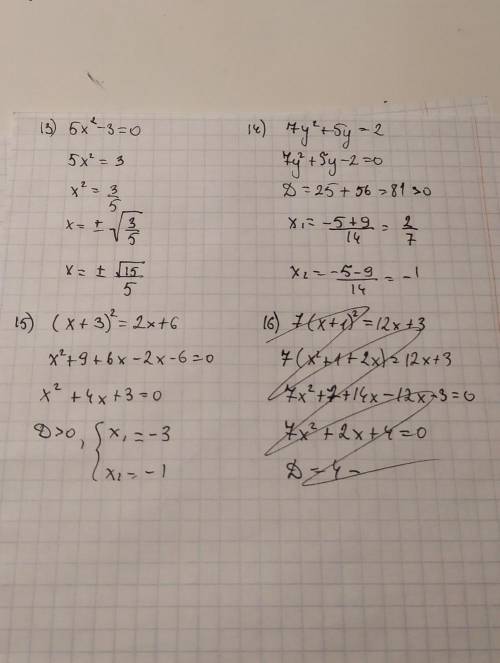 13) 5x² - 3 = 0
5x² = 3
x² = 3/5
x = ± √(3/5)
x = ± √15/5
14) 7y² + 5y = 2
7y² + 5y - 2 = 0
D = 25 + 56 = 81 > 0
x₁ = (-5+9)/14 = 2/7
x₂ = (-5-9)/14 = -1
15) (x + 3)² = 2x + 6
x² + 9 + 6x - 2x - 6 = 0
x² + 4x + 3 = 0
D > 0, { x₁ = -3
x₂ = -1
16) 7(x+1)² = 12x + 3
7(x² + 1 + 2x) = 12x + 3
7x² + 7 + 14x - 12x - 3 = 0
7x² + 2x + 4 = 0
D = 4 -